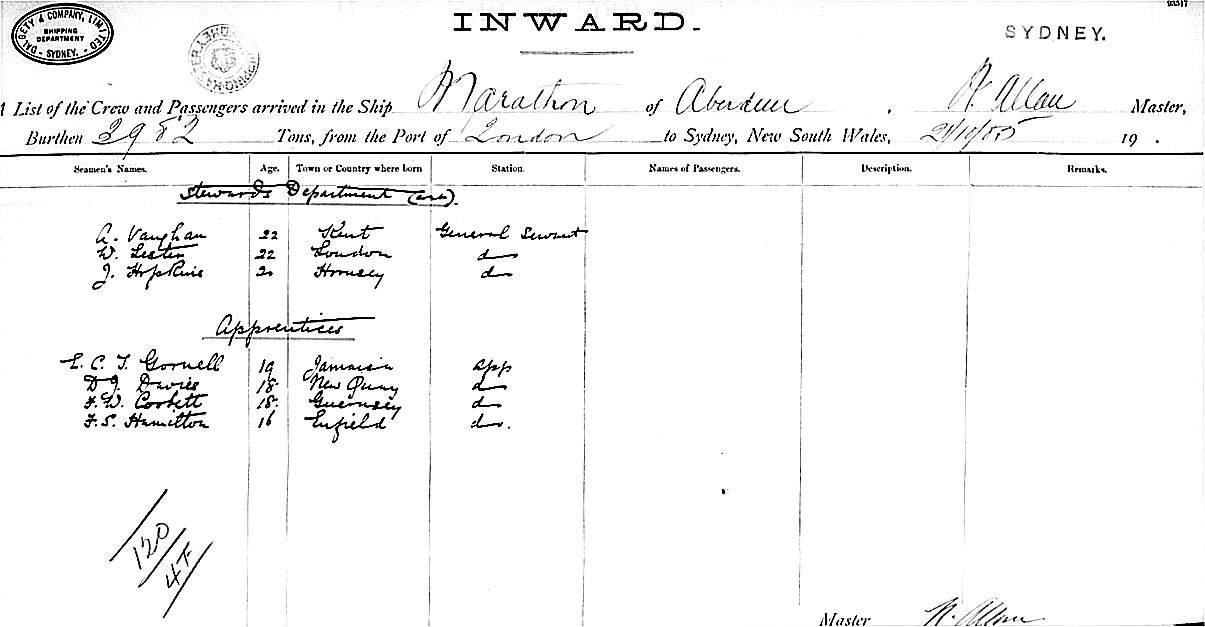 93517
DALGETY & COMPANY, LIMITED
SHIPPING DEPARTMENT
- SYDNEY. -
INWARD.
SYDNEY.
A List of the Crew and Passengers arrived in the Ship Marathon of Aberdeen. N. Allan Master,
Burthen 3982 Tons, from the Port of London to Sydney, New South Wales, 19 .
Seamen's Names. Age. Town or Country where born Station. Names of Passengers. Description. Remarks.
Stewards Department
A. Vaughan 22 Kent General Servant
W. Lester 22 London do
J. Hopkins 20 Hornsey do
Apprentices
E. C. T. Gornell 19 Jamaica App
D. J. Davies 18 New Quay do
F. W. Corbett 18 Guernsey do
F. S. Hamilton 16 Enfield do.
120
47
Master N. Allan